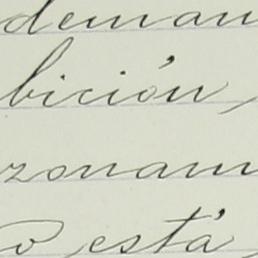 deman
bición,
zonam
o está